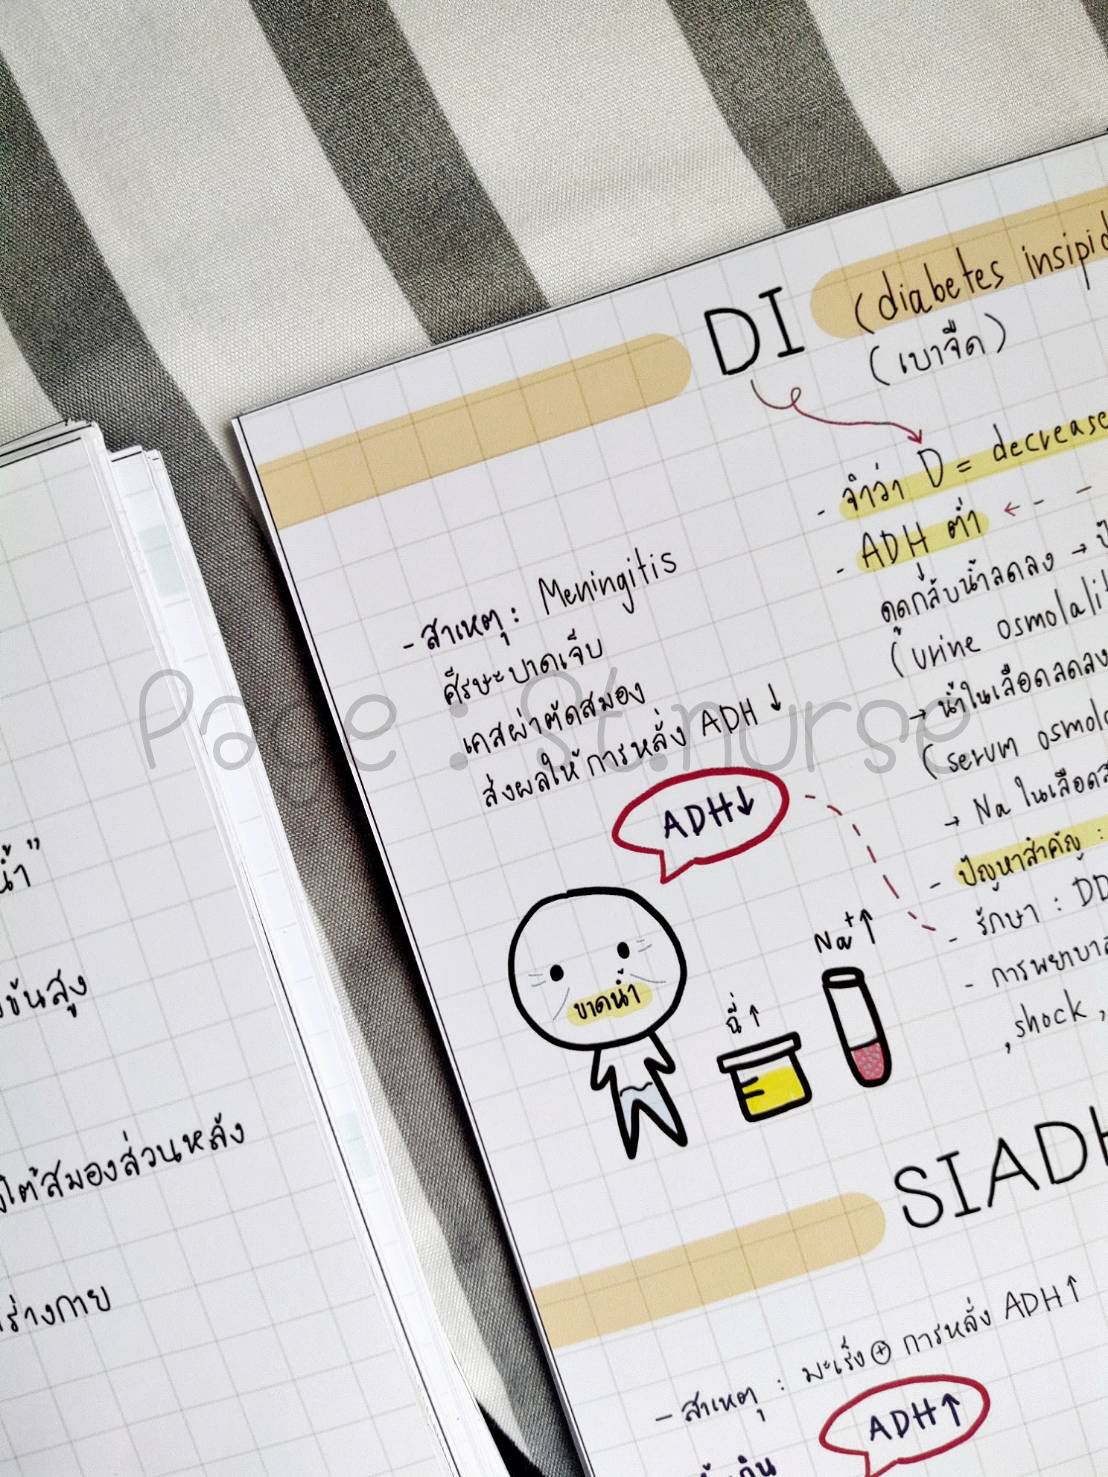 DI
(diabetes insipid
(เบาจืด)
- จำว่า D = decrease
- ADH ต่ำ
ดูดกลับน้ำลดลง →
(urine osmolali
→ น้ำในเลือดลดลง
(serum osmol
→ Na ในเลือด
- ปัญหาสำคัญ :
- รักษา : DD
- การพยาบาล
, shock ,
- สาเหตุ : Meningitis
ศีรษะบาดเจ็บ
เคสผ่าตัดสมอง
ส่งผลให้ การหลั่ง ADH ↓
ADH↓
ขาดน้ำ
ฉี่ ↑
Na⁺↑
SIADH
- สาเหตุ : มะเร็ง ⊕ การหลั่ง ADH ↑
ADH↑
น้ำ"
ข้นสูง
ใต้สมองส่วนหลัง
ร่างกาย
Page : St.nurse